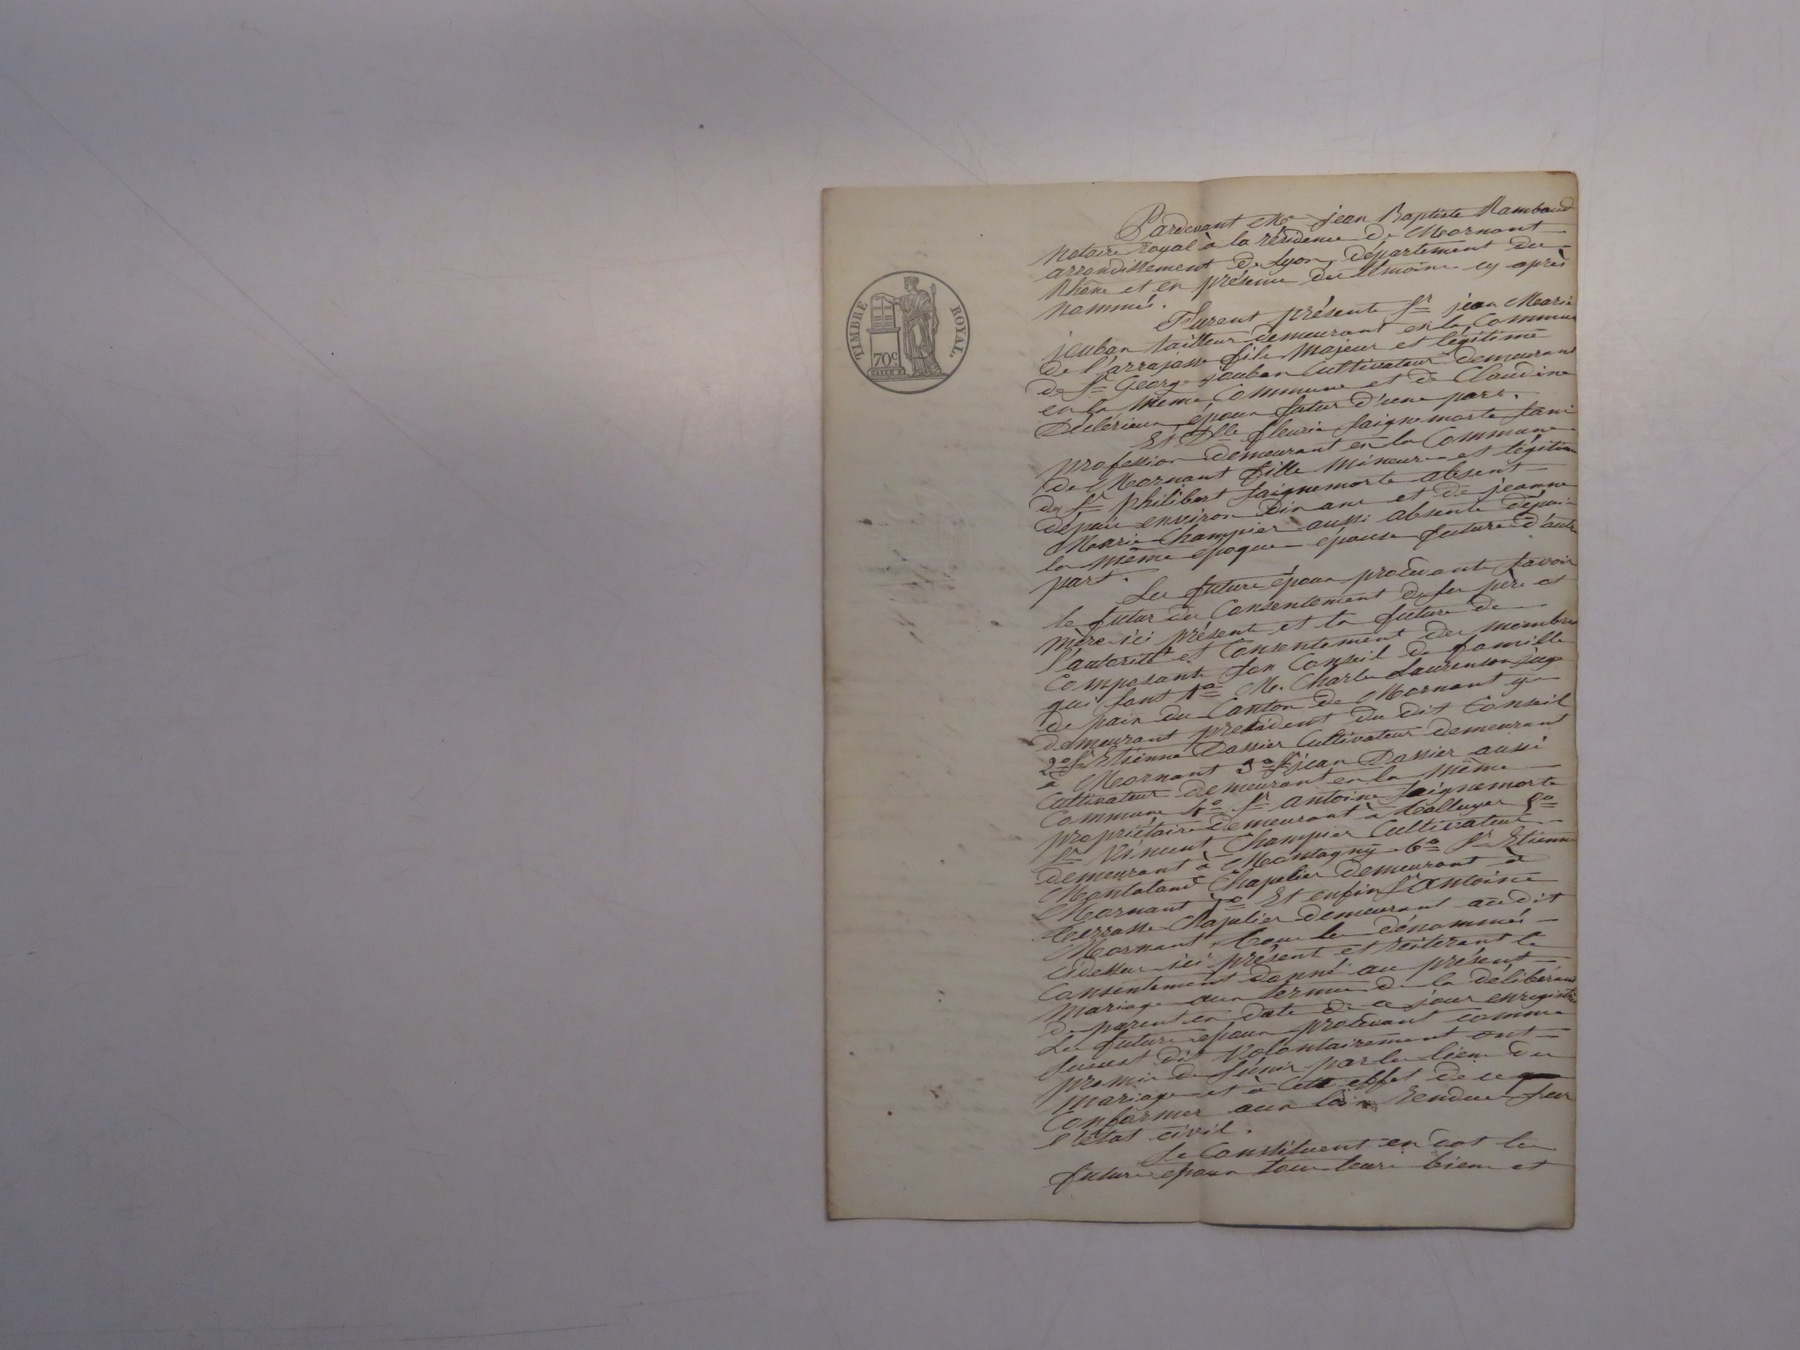 TIMBRE ROYAL.
70c
Pardevant Me jean Baptiste Rambaud
Notaire Royal à la résidence de Mornant
arrondissement de Lyon, département du
Rhône et en présence des témoins cy après
nommés.
Furent présents Sr jean Marie
jouban tailleur demeurant en la Commune
de Larrajasse fils Majeur et légitime
de Sr George jouban Cultivateur demeurant
en la même Commune et de Claudine
époux futur d'une part.
Et Dlle fleurie Saignemorte sans
profession demeurant en la Commune
de Mornant fille Mineure et légitime
de Sr philibert Saignemorte absent
depuis environ dix ans et de jeanne
Marie Champier aussi absente depuis
la même époque épouse future d'autre
part.
Les futurs époux procédants savoir
le futur du Consentement de ses père et
mère ici présent et la future de
l'autorité et Consentement des membres
Composants son Conseil de famille
qui sont 1o M. Charles Laurenson juge
de paix du Canton de Mornant y
demeurant président du dit Conseil
2o Sr Etienne Dassier Cultivateur demeurant
à Mornant 3o Sr jean Dassier aussi
Cultivateur demeurant en la même
Commune 4o Sr antoine Saignemorte
propriétaire demeurant à 5o
Sr Vincent Champier Cultivateur
demeurant à Montagny 6o Sr Etienne
Chapelier demeurant à
Mornant 7o Et enfin Sr antoine
Terrasse Chapelier demeurant audit
Mornant, tous les dénommés
Cidessus ici présent et réiterant le
Consentement donné au présent
mariage aux termes de la délibération
de parents en date de ce jour enregistré
Les futurs époux procédant comme
susest dit Volontairement ont
promis de s'unir par les liens du
mariage et à cet effet de se
Conformer aux lois rendues sur
l'état civil.
Se Constituent en dot les
futurs époux tous leurs biens et